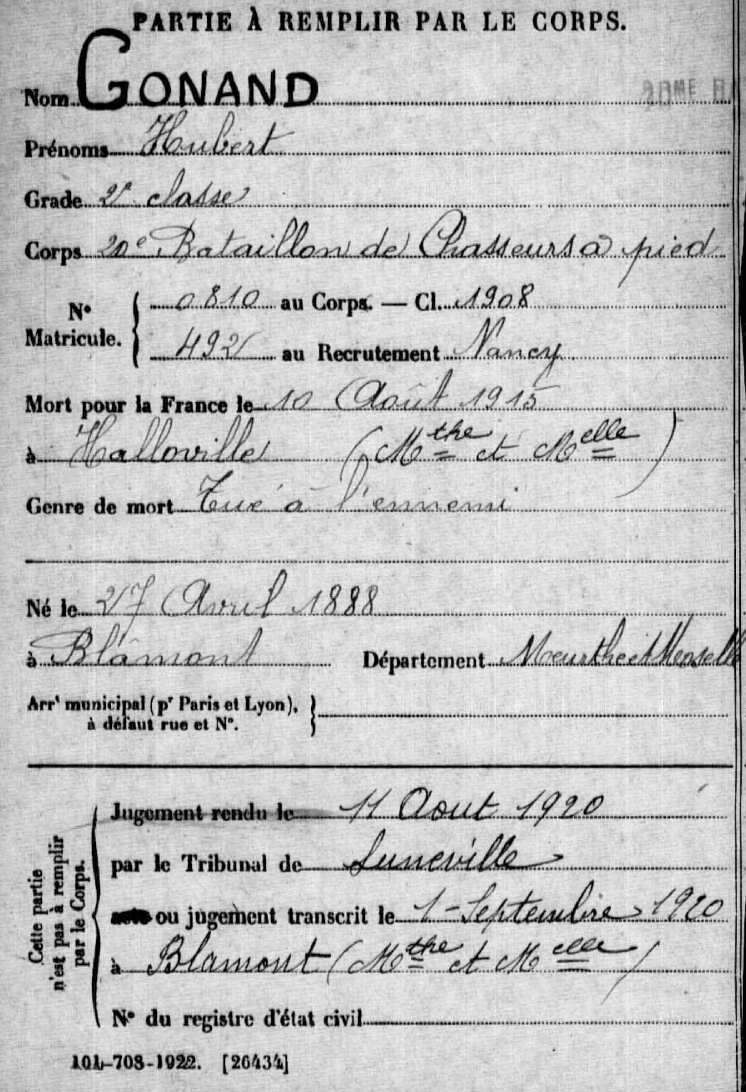 PARTIE À REMPLIR PAR LE CORPS.
Nom GONAND
20ME
Prénoms Hubert
Grade 2e classe
Corps 20e Bataillon de Chasseurs à pied
N° Matricule. 0810 au Corps. — Cl. 1908
492 au Recrutement Nancy
Mort pour la France le 10 Août 1915
à Halloville (Mthe et Melle)
Genre de mort Tué à l'ennemi
Né le 27 Avril 1888
à Blâmont Département Meurthe et Moselle
Arrt municipal (pr Paris et Lyon),
à défaut rue et N°.
Cette partie
n'est pas à remplir
par le Corps.
Jugement rendu le 11 Aout 1920
par le Tribunal de Luneville
acte ou jugement transcrit le 1 - Septembre 1920
à Blamont (Mthe et Melle)
N° du registre d'état civil
101-708-1922. [26434]